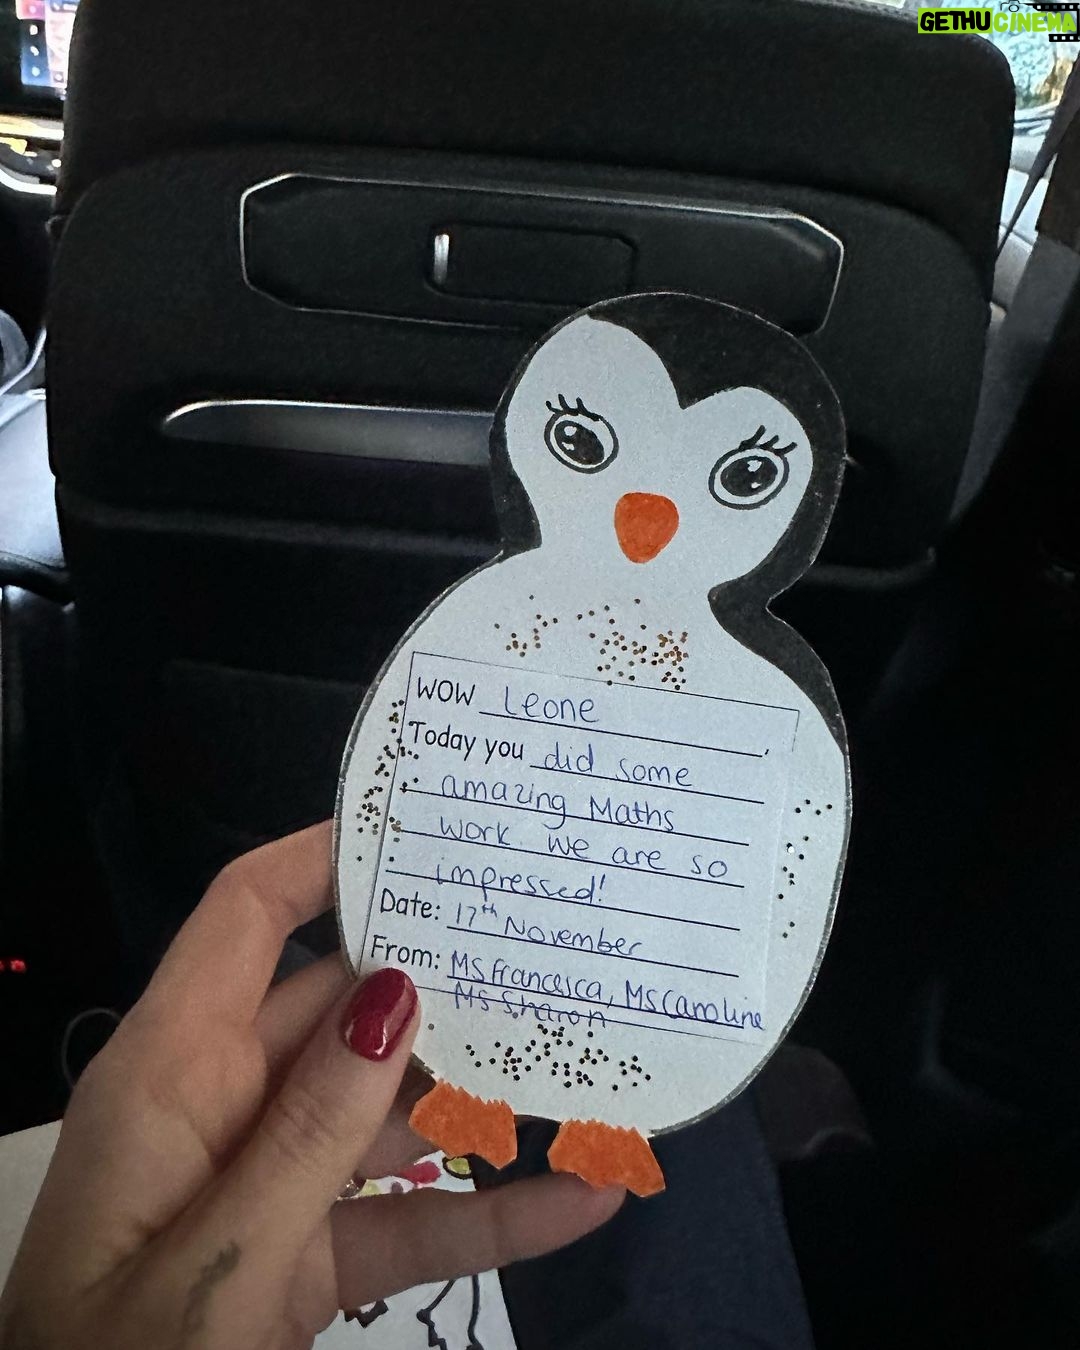 GETHUCINEMA
WOW Leone,
Today you did some
amazing Maths
work. We are so
impressed!
Date: 17th November
From: Ms Francesca, Ms Caroline
Ms Sharon